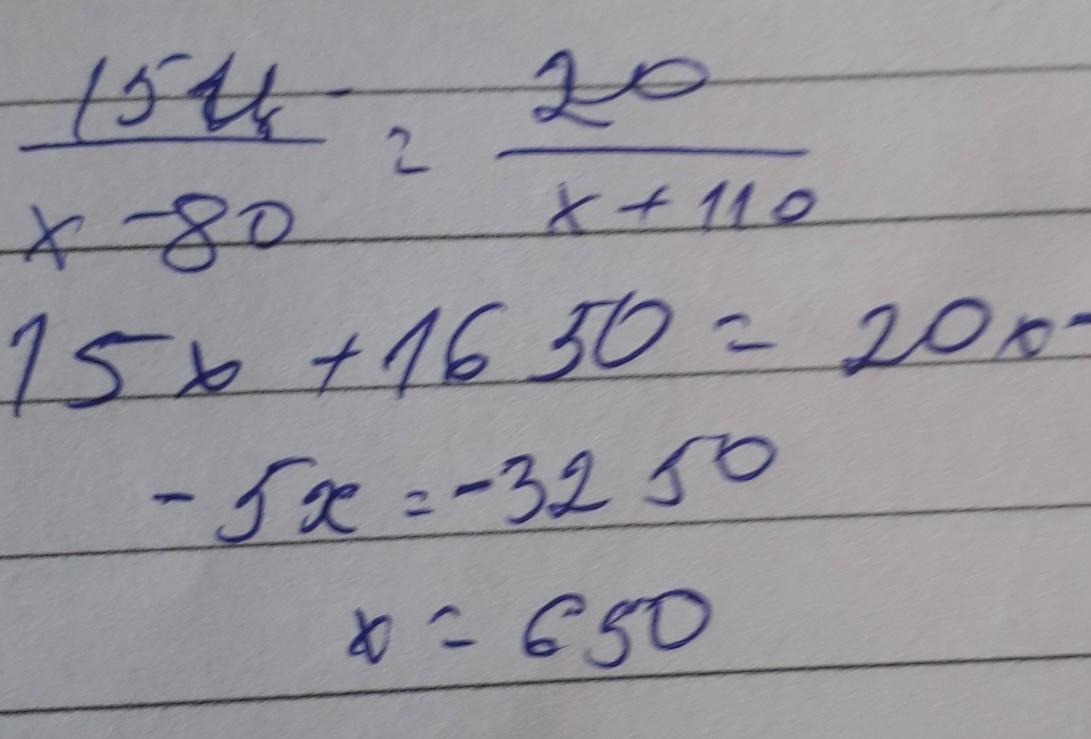 15 / x - 80 = 20 / x + 110
15x + 1650 = 20x -
- 5x = -3250
x = 650